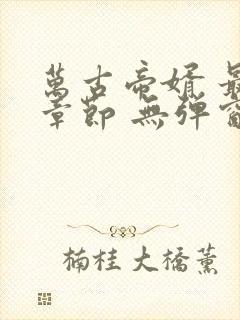 萬古帝婿 最
章節 無彈窗
楠桂大橋薰